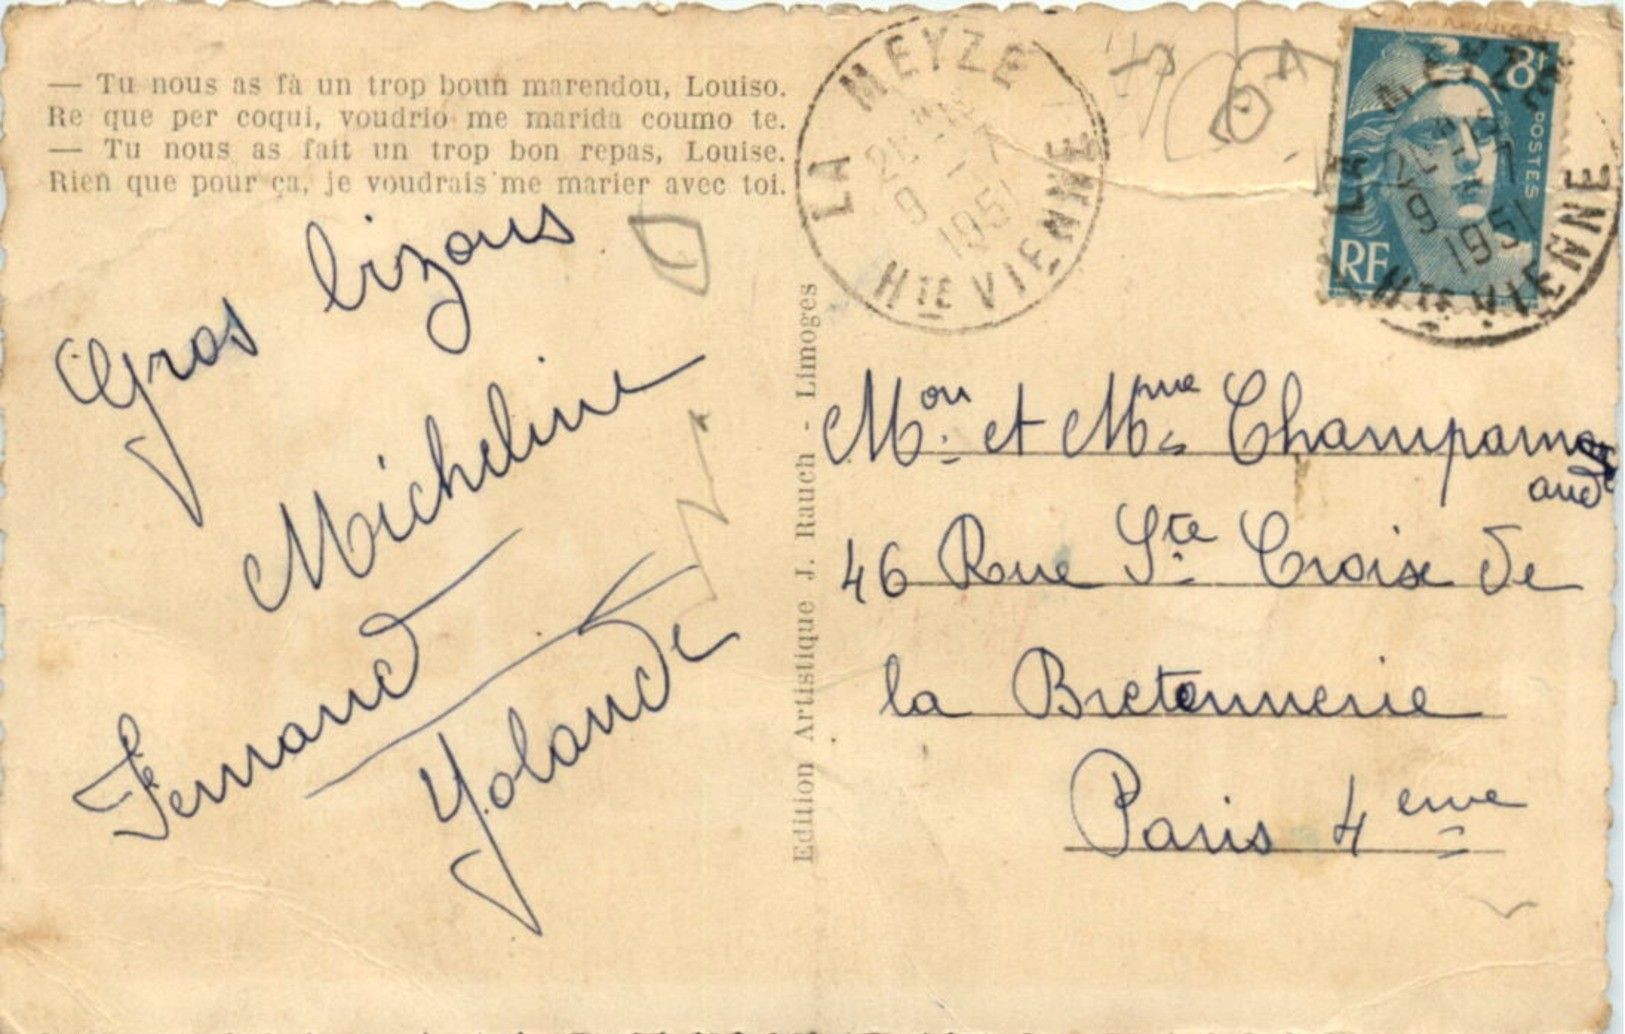 — Tu nous as fà un trop boun marendou, Louiso.
Re que per coqui, voudrio me marida coumo te.
— Tu nous as fait un trop bon repas, Louise.
Rien que pour ça, je voudrais me marier avec toi.
Gros bizous
Micheline
Fernand
Yolande
Edition Artistique J. Rauch - Limoges
LA MEYZE
9 1951
HTE VIENNE
8F
POSTES
RF
LA MEYZE
9 1951
HTE VIENNE
Mon. et Mme Champarn
aud
46 Rue Ste Croix de
la Bretonnerie
Paris 4eme